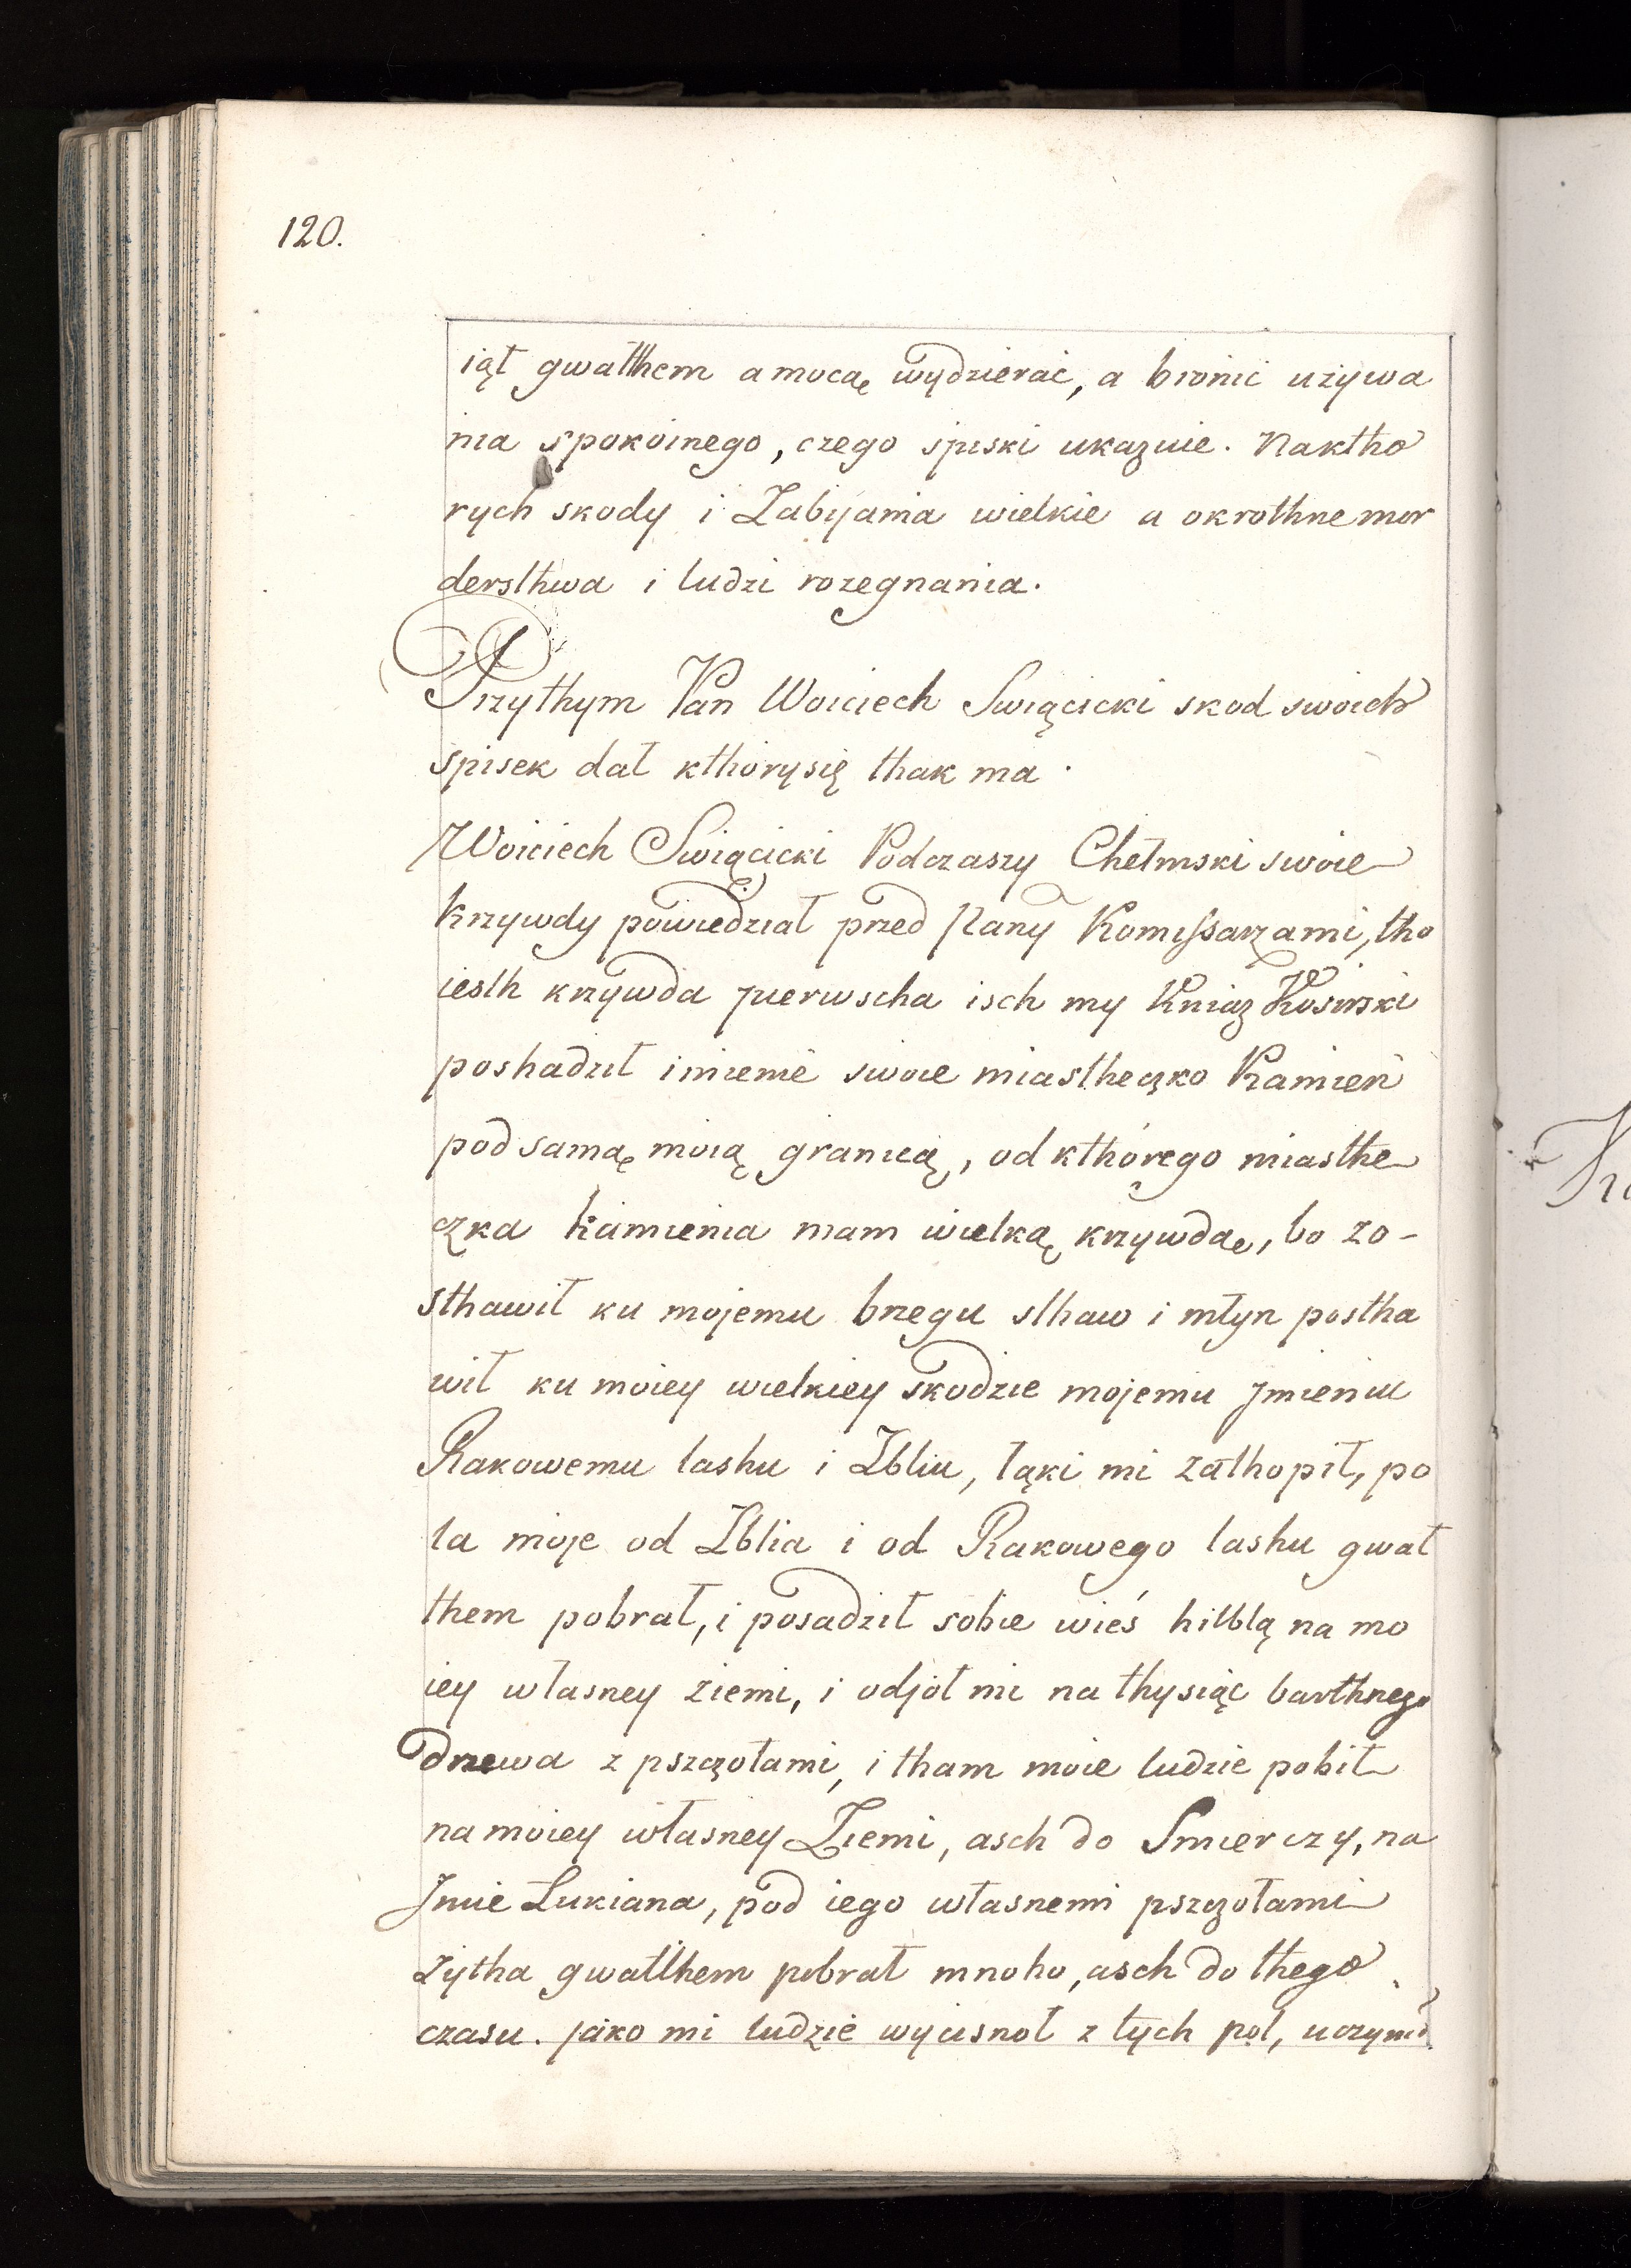 120.
iął gwałthem a mocaę wydzierać, a bronić używa
nia spokoinego, czego spiski ukazuie. Naktho
rych skody i Zabijania wielkie a okrothne mor
dersthwa i ludzi rozegnania.
Przythym Pan Woiciech Swiącicki skod swoich
spisek dał kthorysię thak ma.
Woiciech Swiącicki Podczaszy Chełmski swoie
krzywdy powiedział przed Pany Komissarzami, tho
iesth krzywda pierwscha isch my Kniaz Kosirski
poshadził imienie swoie miastheczko Kamień
pod samaę moią granicą, od kthórego miasthe
czka Kamienia mam wielkaę krzywdaę, bo zo-
sthawił ku mojemu bregu sthaw i młyn postha
wił ku moiey wielkiey skodzie mojemu Jmieniu
Rakowemu lashu i Zbliu, łąki mi zathopił, po
la moje od Zblia i od Rakowego lashu gwał
them pobrał, i posadził sobie wieś hilblą na mo
iey własney ziemi, i odjoł mi na thysiąc barthnego
drzewa z pszczołami, i tham moie ludzie pobił
na moiey własney Ziemi, asch do Smierczy, na
Jmie Lukiana, pod iego własnemi pszczołami
Zytha gwałthem pobrał mnoho, asch do thego
czasu. jako mi ludzie wycisnoł z tych pol, uczynił